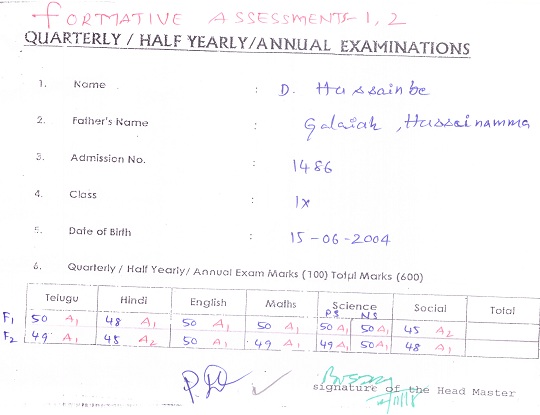 FORMATIVE ASSESSMENTS 1, 2
QUARTERLY / HALF YEARLY/ANNUAL EXAMINATIONS
1. Name : D. Hussainbe
2. Father's Name : Galaiah, Hussainamma
3. Admission No. : 1486
4. Class : IX
5. Date of Birth : 15-06-2004
6. Quarterly / Half Yearly/ Annual Exam Marks (100) Total Marks (600)
Telugu Hindi English Maths Science Social Total
P.S N.S
F1 50 A1 48 A1 50 A1 50 A1 50 A1 50 A1 45 A2
F2 49 A1 45 A2 50 A1 49 A1 49 A1 50 A1 48 A1
signature of the Head Master